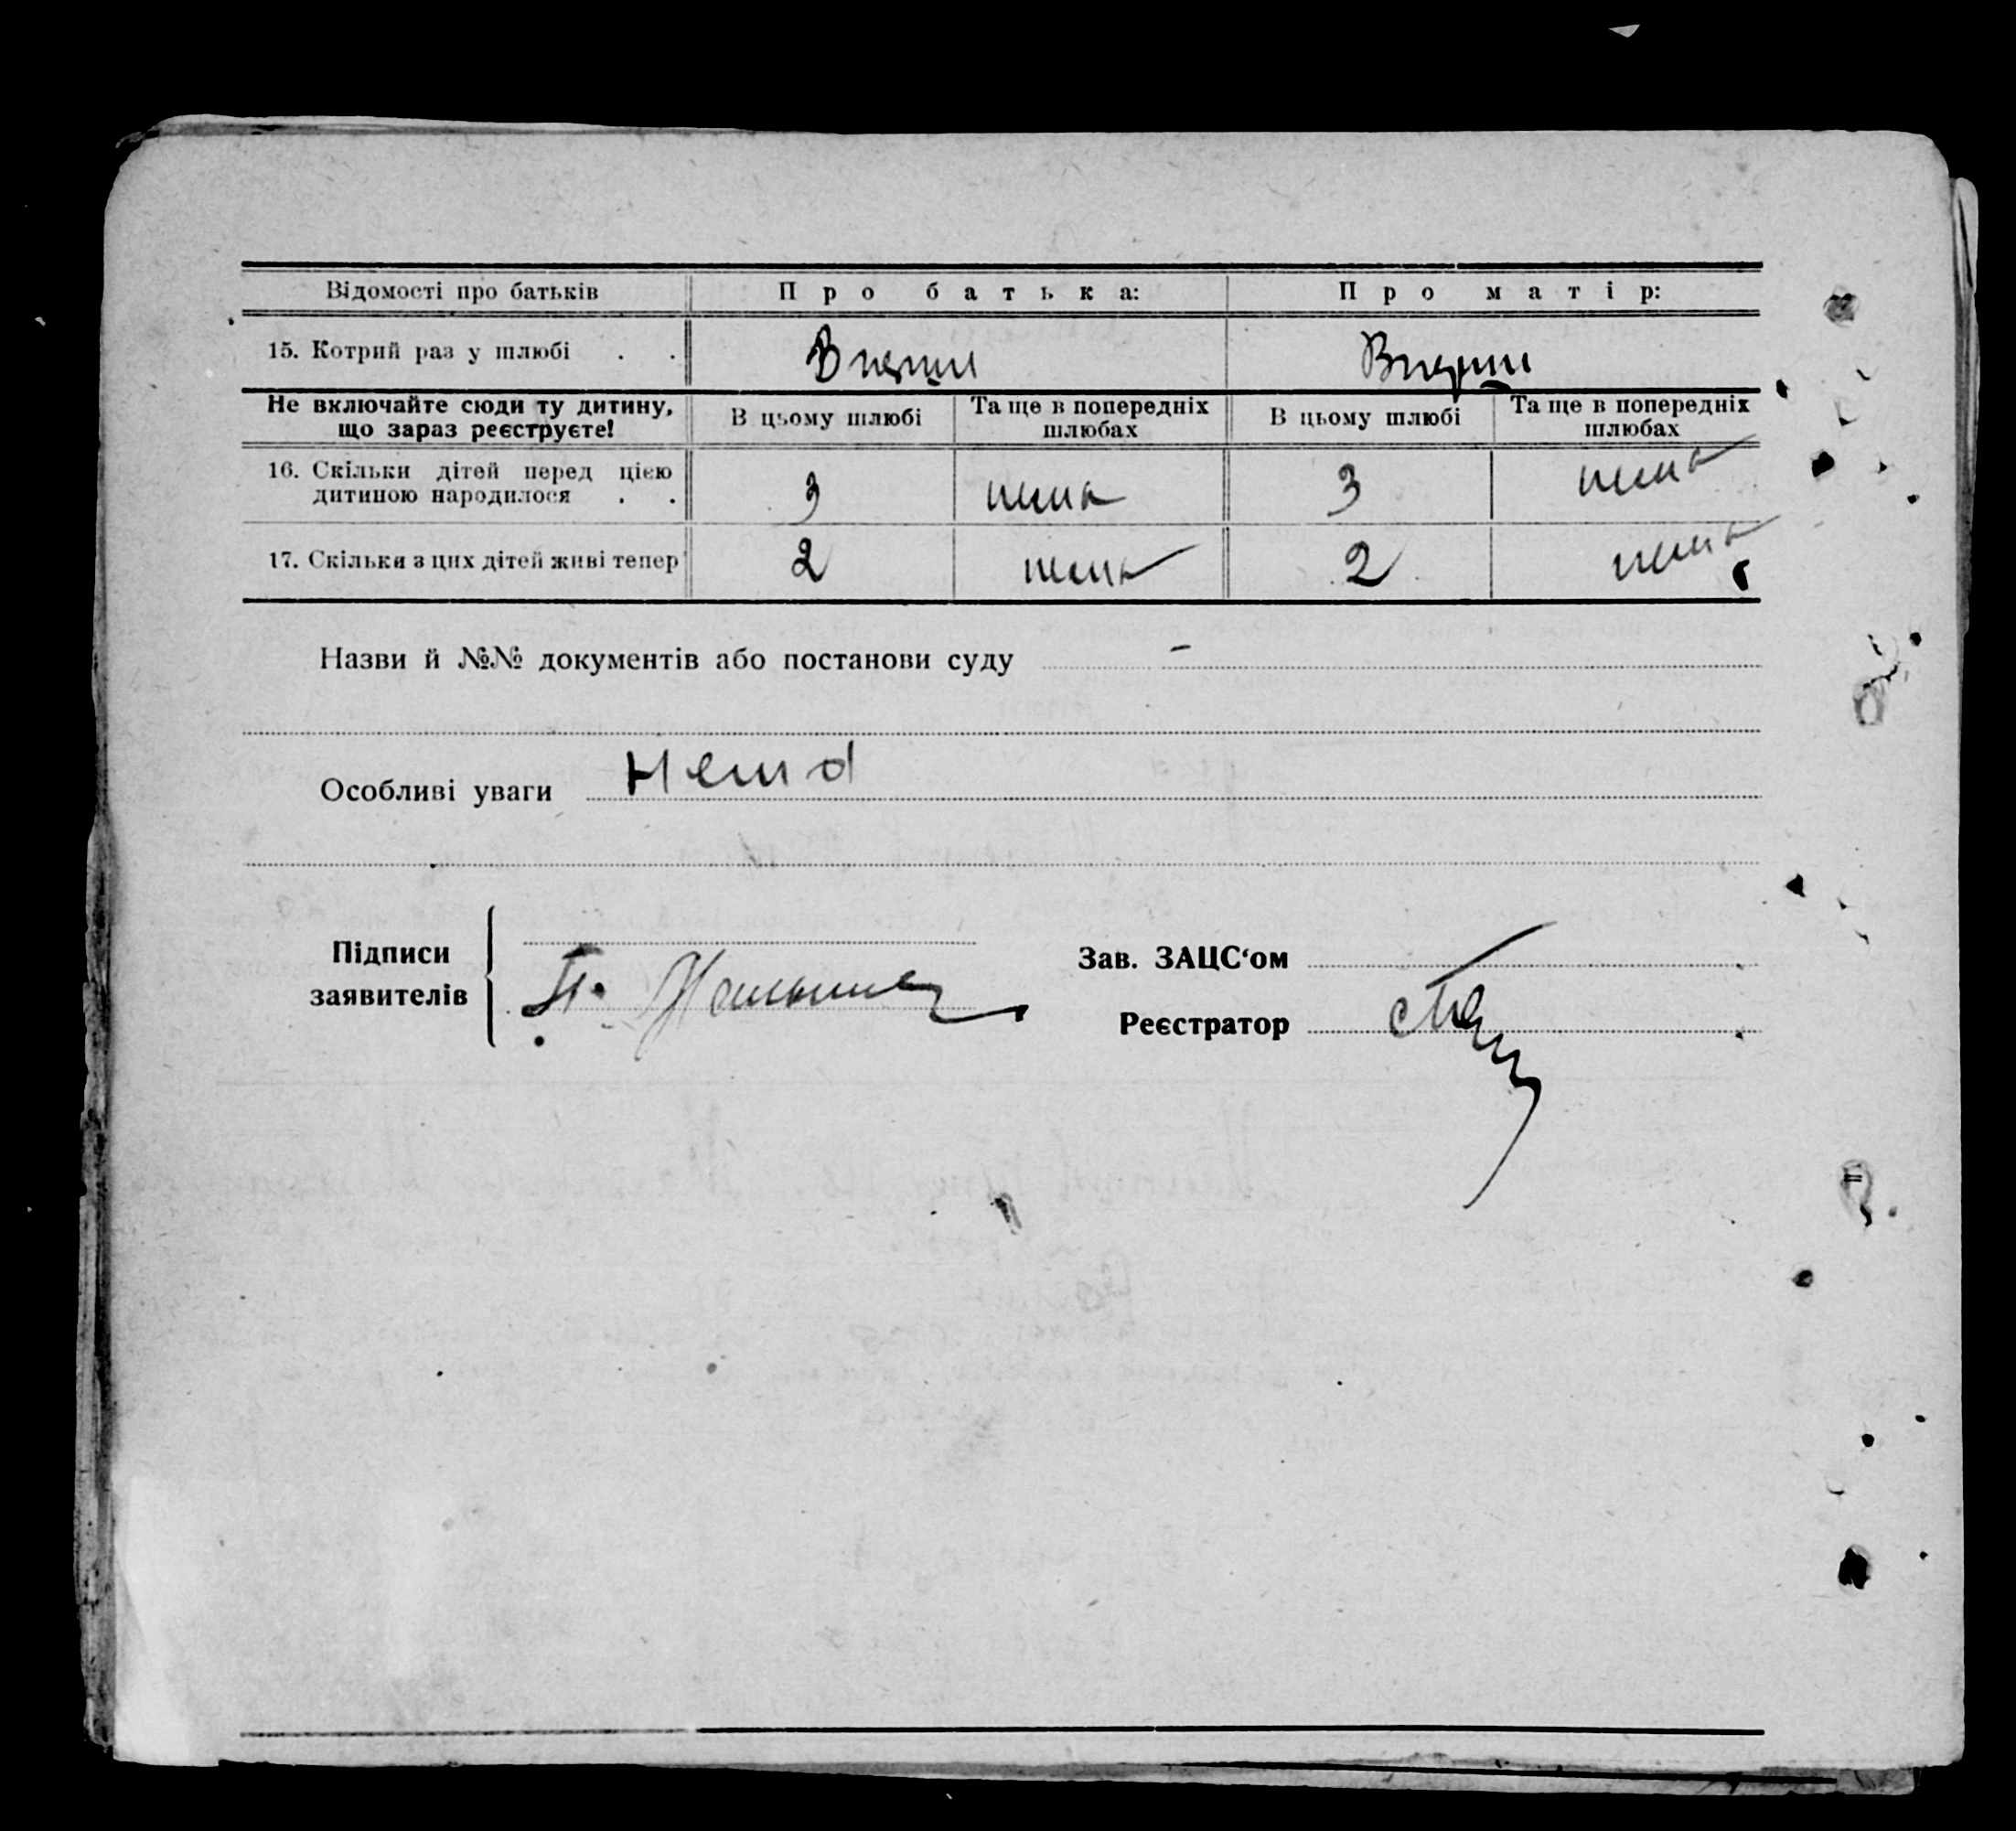 Відомості про батьків Про батька: Про матір:
15. Котрий раз у шлюбі . . Вперше Вперше
Не включайте сюди ту дитину, що зараз реєструєте! В цьому шлюбі Та ще в попередніх шлюбах В цьому шлюбі Та ще в попередніх шлюбах
16. Скільки дітей перед цією дитиною народилося . . 3 нема 3 нема
17. Скільки з цих дітей живі тепер 2 нема 2 нема
Назви й №№ документів або постанови суду -
Особливі уваги Нема
Підписи заявителів
Зав. ЗАЦС‘ом
Реєстратор